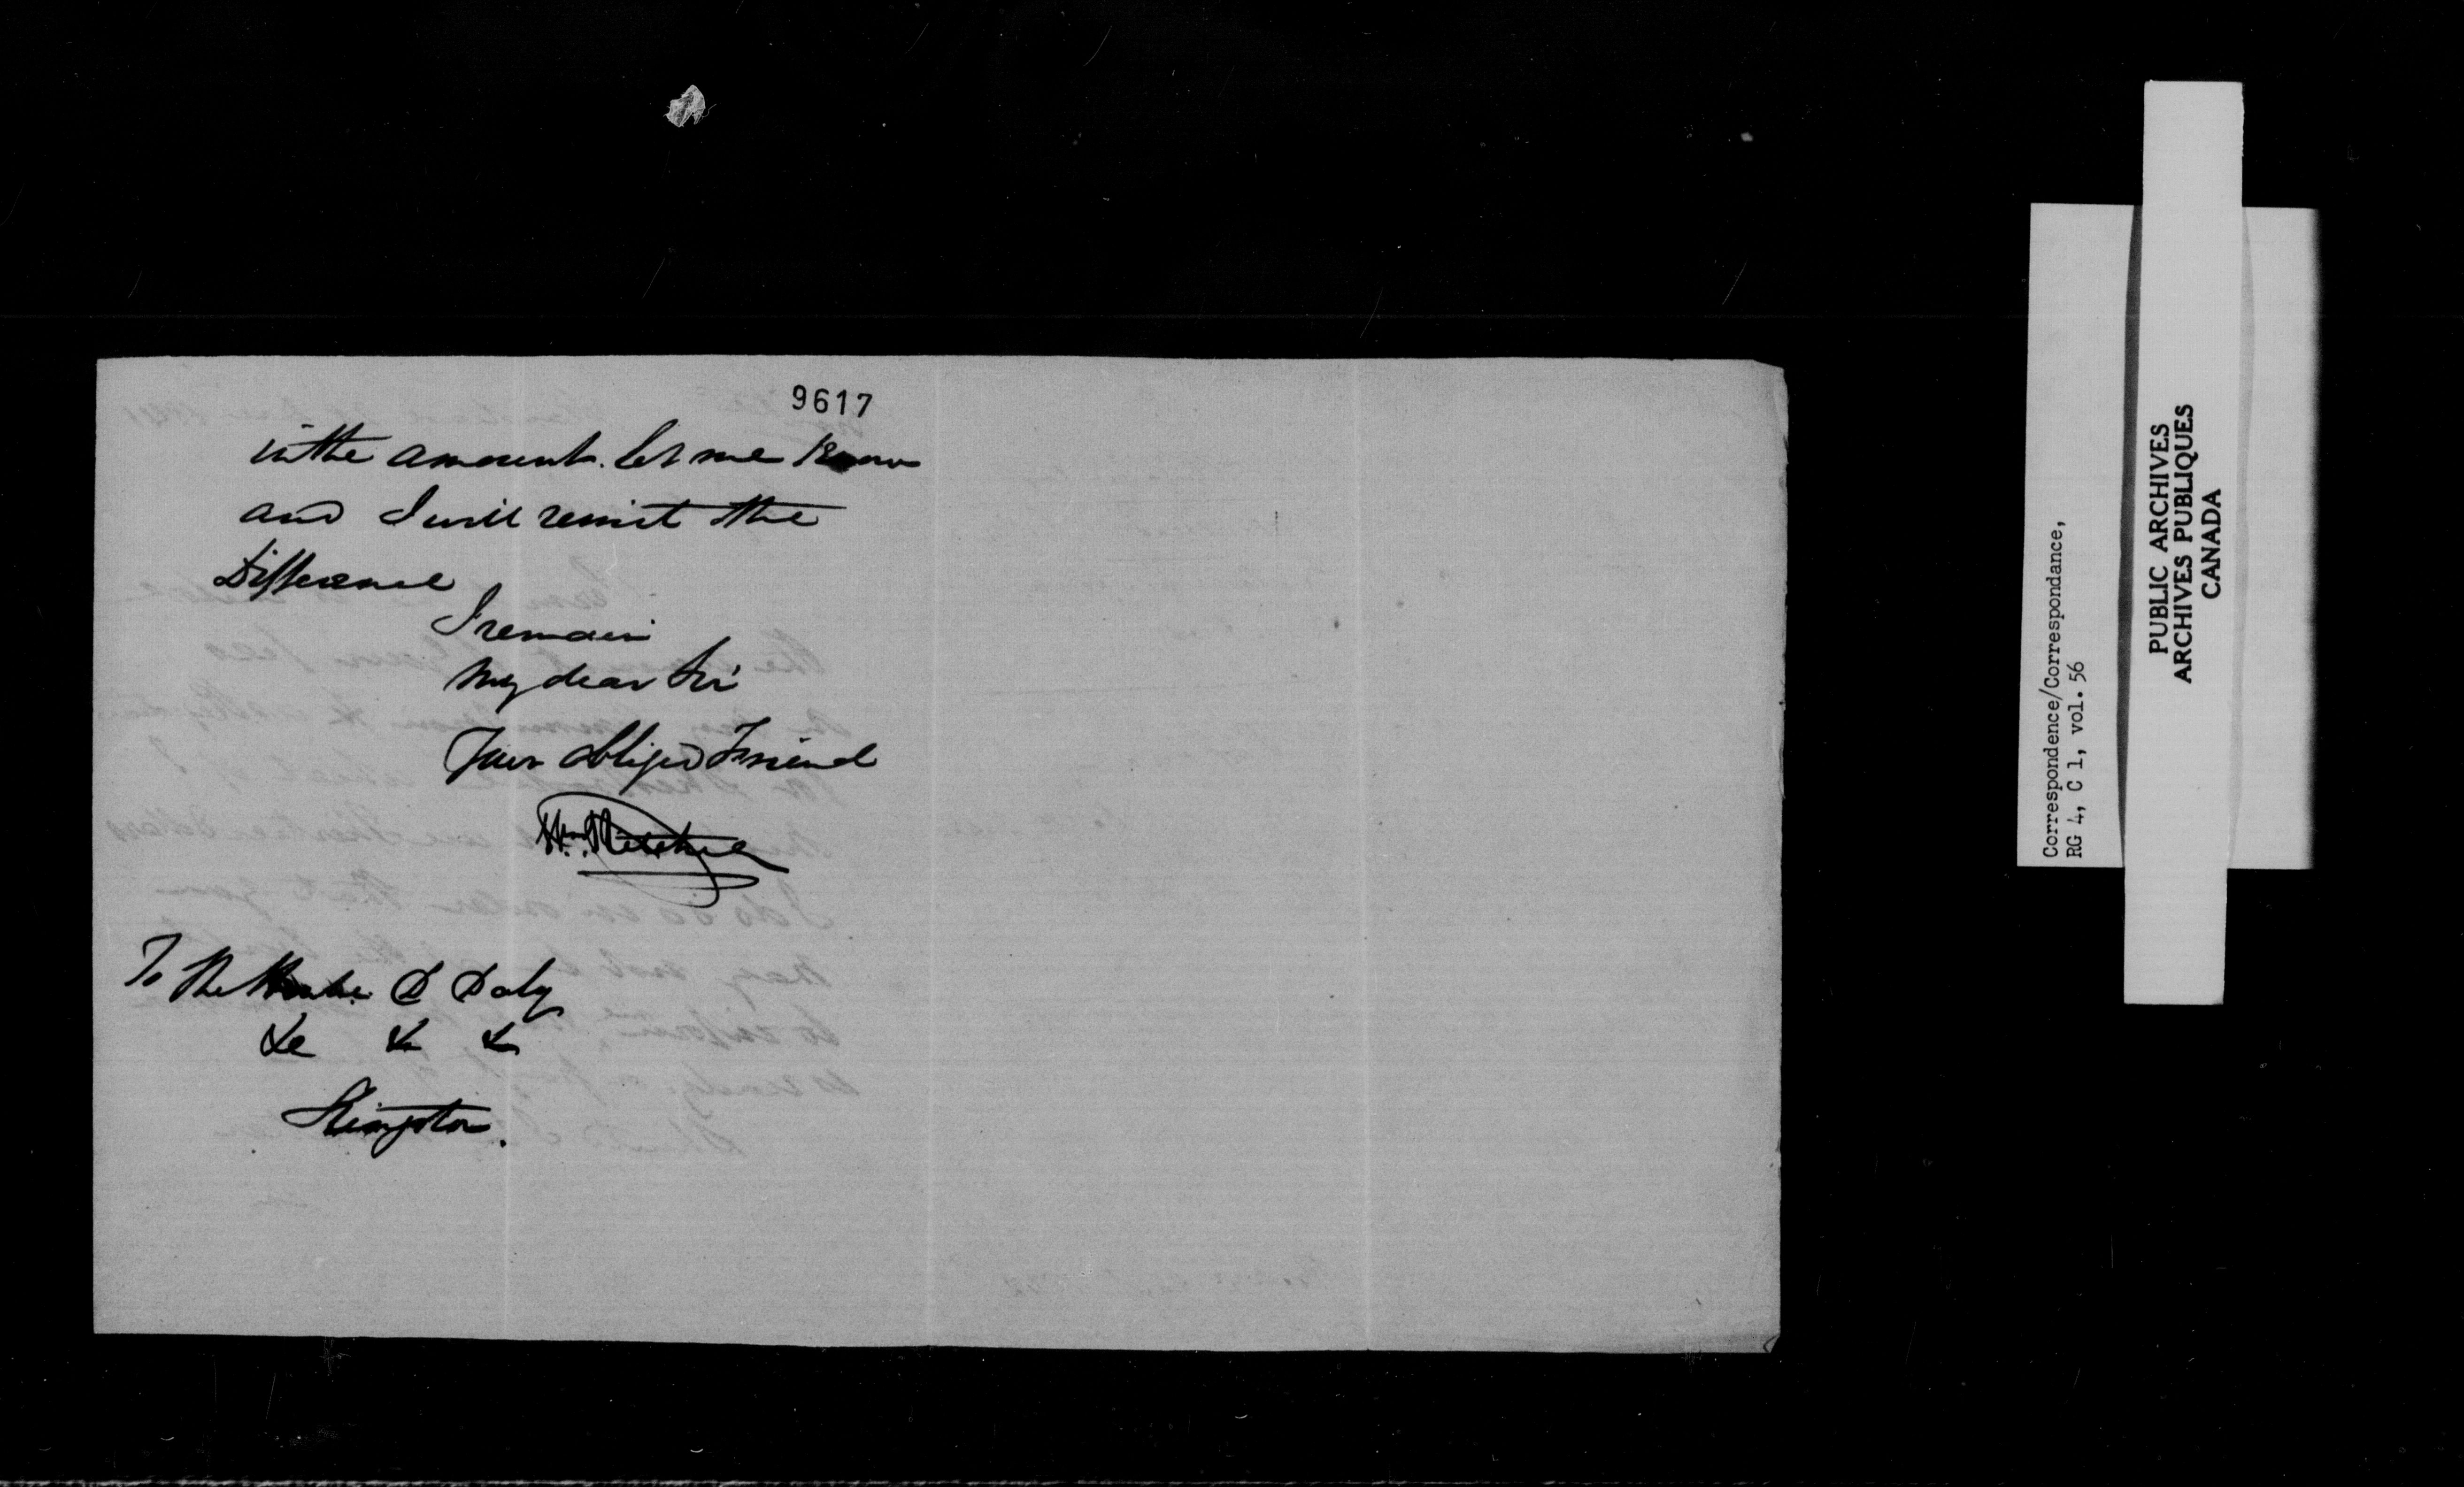 9617
in the amount. let me know
and I will remit the
Difference
I remain
My dear Sir
Your obliged Friend
Wm. Ritchie
To The Honble. D Daly
&c &c &c
Kingston.
Correspondence/Correspondance,
RG 4, C 1, vol. 56
PUBLIC ARCHIVES
ARCHIVES PUBLIQUES
CANADA